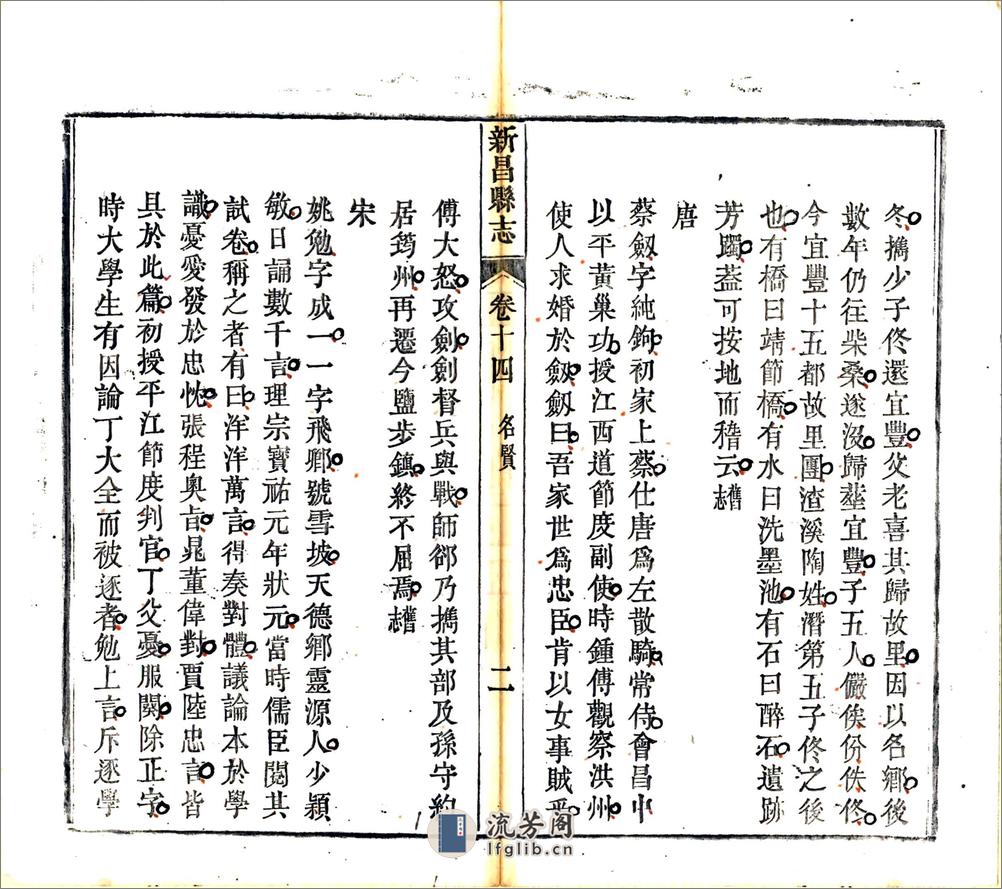 冬擕少子佟還宜豐父老喜其歸故里因以名鄉後
數年仍往柴桑遂沒歸塟宜豐子五人儼俟份佚佟
今宜豐十五都故里團渣溪陶姓潛第五子佟之後
也有橋曰靖節橋有水曰洗墨池有石曰醉石遺跡
芳躅葢可按地而稽云舊志
唐
蔡劔字純鉤初家上蔡仕唐爲左散騎常侍會昌中
以平黃巢功授江西道節度副使時鍾傅觀察洪州
使人求婚於劔劔曰吾家世爲忠臣肯以女事賊乎
新昌縣志
卷十四
名賢
二
傅大怒攻劍劍督兵與戰師郤乃擕其部及孫守約
居筠州再遷今鹽步鎮終不屈焉舊志
宋
姚勉字成一一字飛卿號雪坡天德鄉靈源人少穎
敏日誦數千言理宗寶祐元年狀元當時儒臣閱其
試卷稱之者有曰洋洋萬言得奏對體議論本於學
識憂愛發於忠忱張程奥旨晁董偉對賈陸忠言皆
具於此篇初授平江節度判官丁父憂服闋除正字
時大學生有因論丁大全而被逐者勉上言斥逐學
流芳阁
lfglib.cn